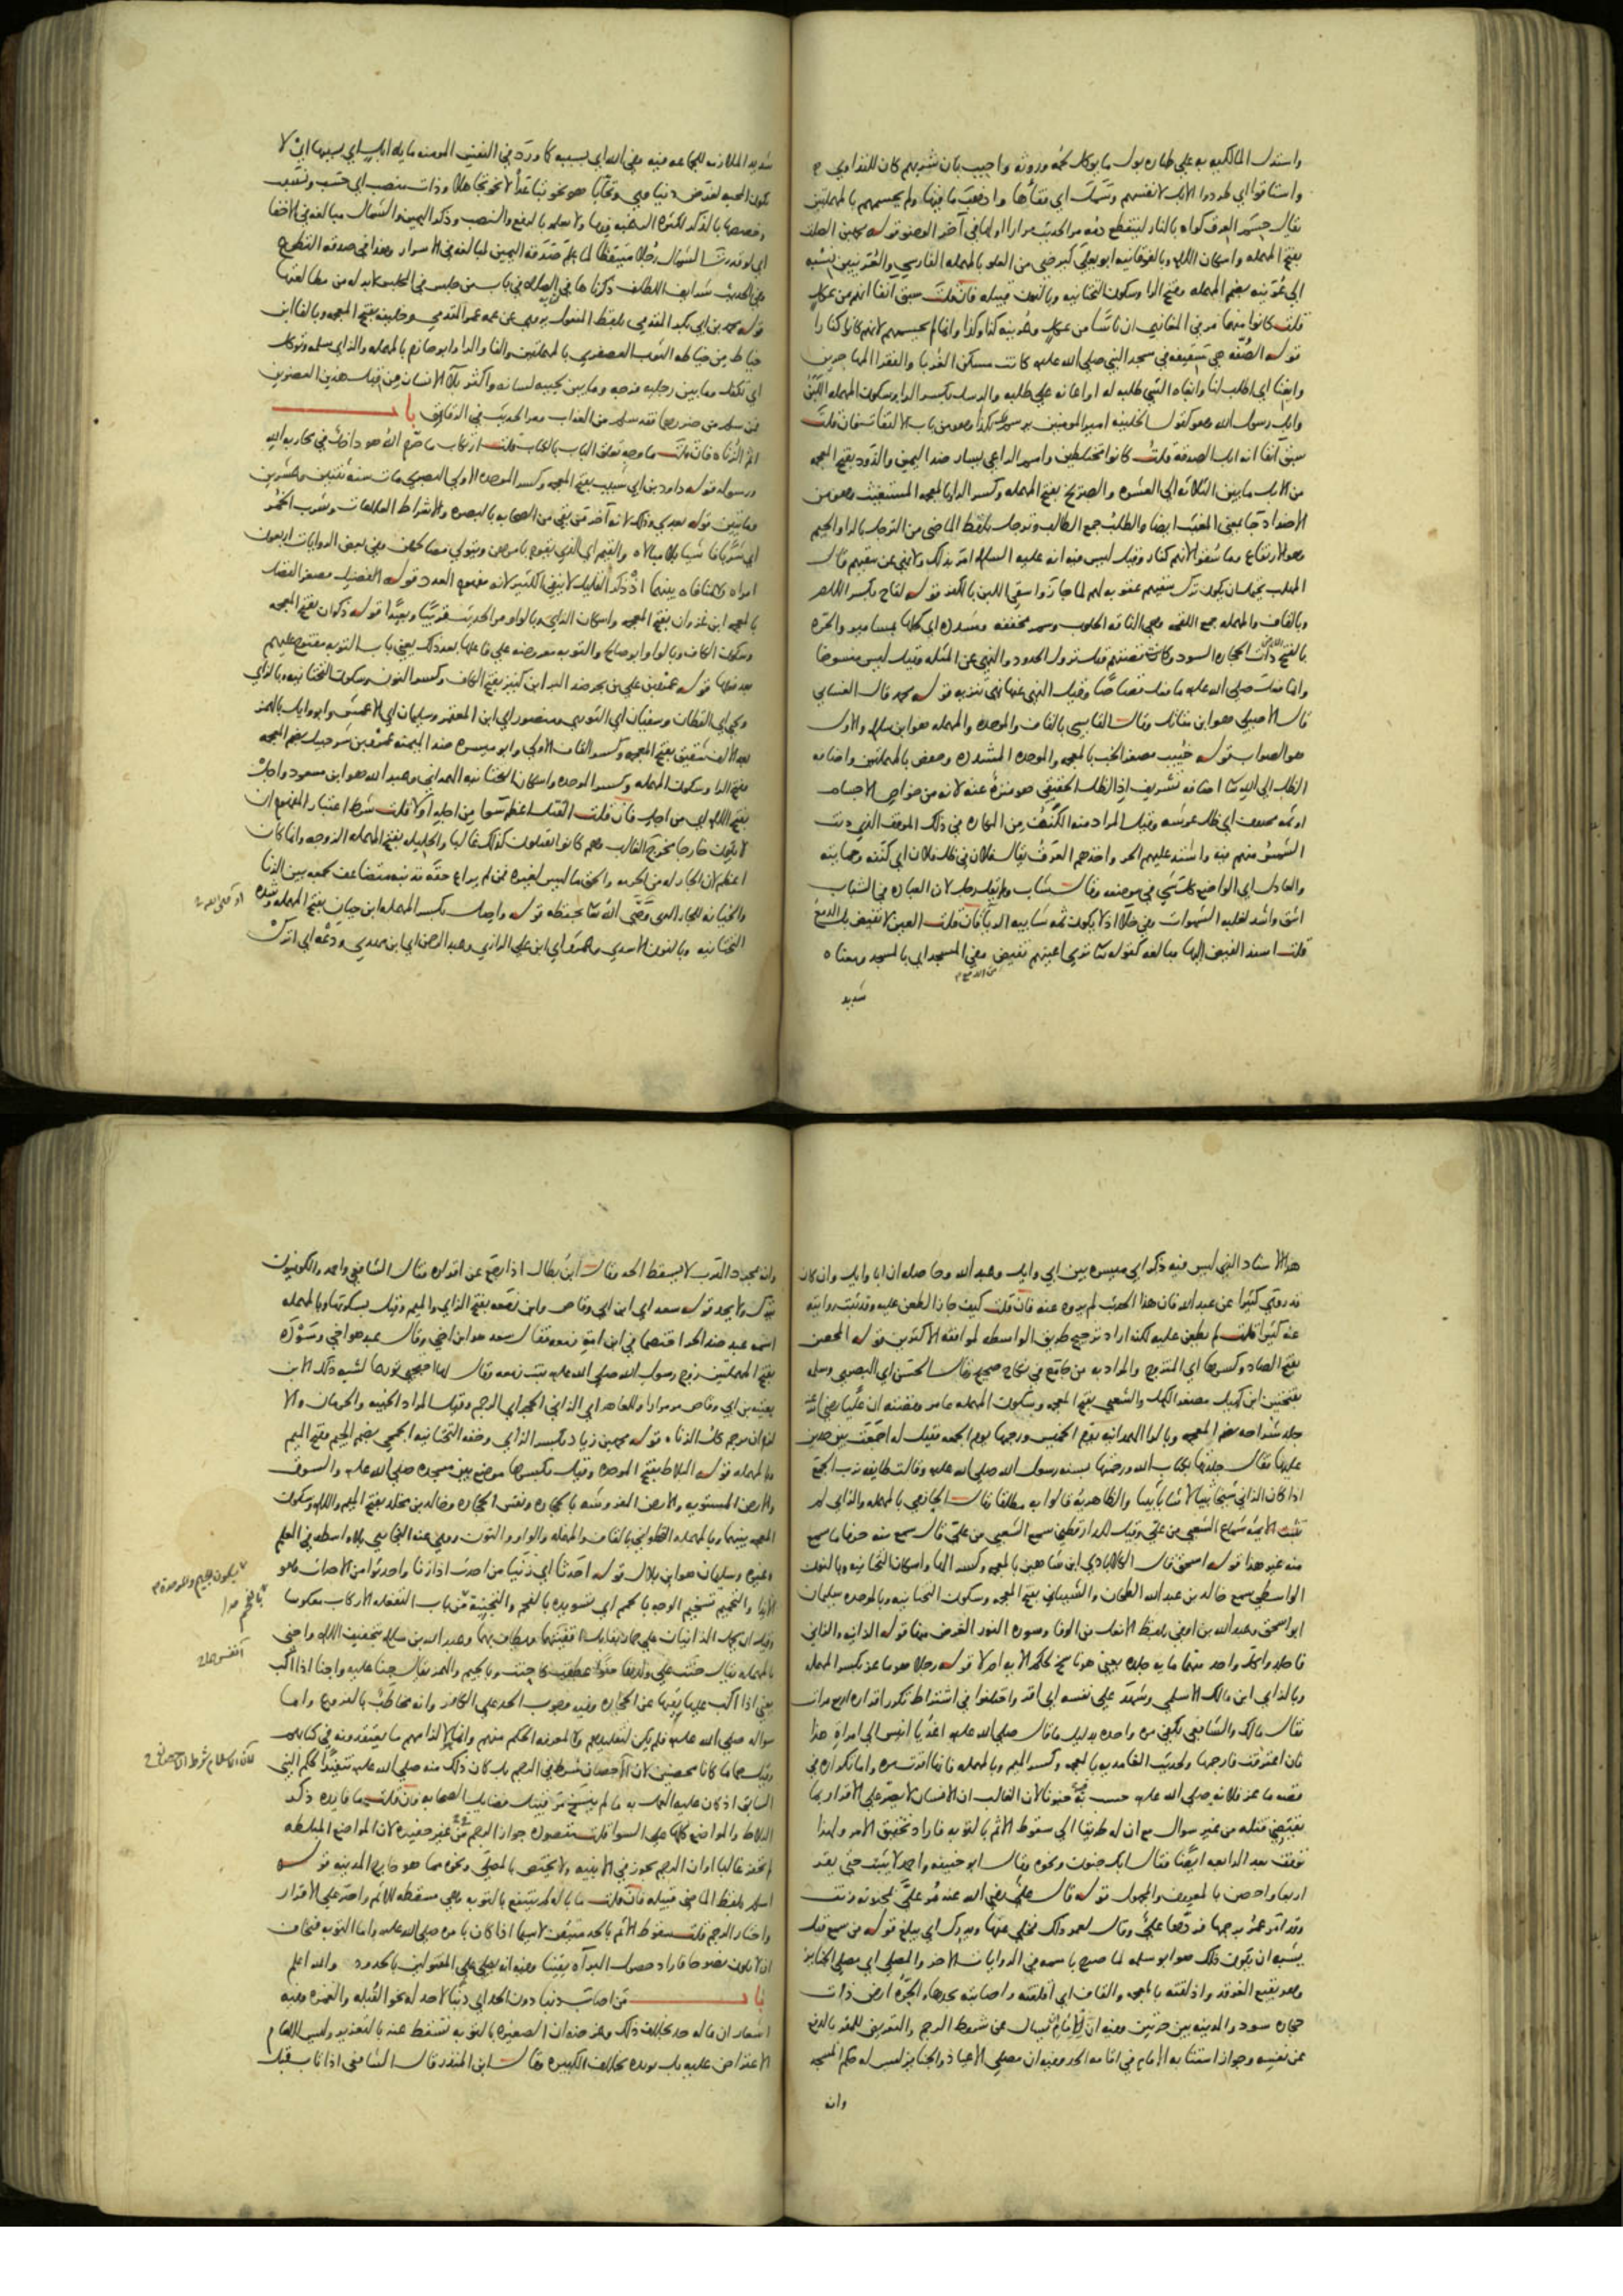 واستدل المالكيه به على طهاره بول ما يوكل لحمه وروثه واجيب بان شربهم كان للتداوي
واستاقوا اي طردوا الابل لانفسهم وسمل اي فقأها واذهب ما فيها ولم يحسمهم بالمهملتين
يقال حسم العرق كواه بالنار لينقطع دمه مر الحديث مرارا اولها في آخر الوضو قوله محمد بن الصلت
بفتح المهمله واسكان اللام وبالفوقانيه ابو يعلى
الى عرينه بضم المهمله وفتح الرا وسكون التحتانيه وبالنون قبيله فان قلت سبق آنفا انهم من عكل
قلت كانوا منهما مر في المغازي ان ناسا من عكل وعرينه
قوله الصفه هي سقيفه في مسجد النبي صلى الله عليه كانت مسكن الغربا والفقرا المهاجرين
وابغنا اي اطلب لنا وابغاه الشي طلبه له او اعانه على طلبه والرسل بكسر الرا وسكون المهمله اللبن
وابل رسول الله وهو كقول الخليفه امير المومنين يرسم لك كذا وهو من باب الالتفات فان قلت
سبق آنفا انه ابل الصدقه قلت كانوا مختلطين واسم الراعي يسار ضد اليمين والذود بفتح المعجمه
من الابل ما بين الثلاثه الى العشره والصريخ بفتح المهمله وكسر الرا وبالمعجمه المستغيث وهو من
الاضداد جا بمعنى المغيث ايضا والطلب جمع الطالب وترجل بلفظ الماضي من الترجل بالرا والجيم
وهو الارتفاع وما سقوا لانهم كفار وقيل ليس فيه انه عليه السلام امر بذلك ولا نهى عن سقيهم قال
المهلب يحتمل ان يكون ترك سقيهم عقوبه لهم لما جازوا سقي اللبن بالكفر قوله لقاح بكسر اللام
وبالقاف والمهمله جمع اللقحه وهي الناقه الحلوب وسمر مخففه ومشدده اي كحلها بمسامير والحره
بالفتح الارض ذات الحجاره السود وكانت قصتهم قبل نزول الحدود والنهي عن المثله وقيل ليس منسوخا
وانما فعل صلى الله عليه ما فعل قصاصا وقيل النهي عنها نهي تنزيه قوله محمد قال الغساني
قال الاصيلي هو ابن مقاتل وقال القابسي بالقاف والموحده والمهمله هو ابن سلام والاول
هو الصواب قوله خبيب مصغر الخب بالمعجمه والموحده المشدده وحفص بالمهملتين واضافه
الظل الى الله تعالى اضافه تشريف اذ الظل الحقيقي هو منزه عنه لانه من خواص الاجسام
او ثمه محذوف اي ظل عرشه وقيل المراد منه الكنف من المكاره في ذلك الموقف الذي دنت
الشمس منهم فيه واشتد عليهم الحر واخذهم العرق يقال فلان في ظل فلان اي كنفه وحمايته
والعادل اي الواضع كل شي في موضعه وقال شاب ولم يقل رجل لان العباده في الشباب
اشق واشد لغلبه الشهوات وفي خلا اذ لا يكون ثمه شايبه الريا فان قلت العين لا تفيض بل الدمع
قلت اسند الفيض اليها مبالغه كقوله تعالى ترى اعينهم تفيض من الدمع وفي المسجد اي بالمسجد ومعناه
شديد
شديد الملازمه للجماعه فيه وفي الله اي بسببه كما ورد في النفس المومنه مايه ابل اي بسببها اي لا
تكون المحبه لغرض دنياوي وتحابا هو نحو تباعدا لا نحو تجاهلا وذات منصب اي حسب ونسب
وخصصها بالذكر لكثره الرغبه فيها ولا تعلم بالرفع والنصب وذكر اليمين والشمال مبالغه في الاخفا
اي لو قدرت الشمال رجلا متيقظا لما علم صدقه اليمين لمبالغه في الاسرار وهذا في صدقه التطوع
وفي الحديث شرايف اللطايف ذكرناها في الصلاه في باب من جلس في المجلس لابد له من مطالعتها
قوله محمد بن ابي بكر المقدمي بلفظ المفعول يروي عن عمه عمر المقدمي وخليفه بفتح المعجمه وبالفا ابن
خياط من خياطه الثوب العصفري بالمهملتين والفا والرا وابو حازم بالمهمله والزاي سلمه وتوكل
اي تكفل وما بين رجليه فرجه وما بين لحييه لسانه واكثر بلا الانسان من قبل هذين العضوين
فمن سلم من ضررهما فقد سلم من العذاب مر الحديث في الرقايق باب
اثم الزناه فان قلت ما وجه تعلق الباب بالكتاب قلت ارتكاب ما حرم الله هو داخل في محاربه الله
ورسوله قوله داود بن ابي شبيب بفتح المعجمه وكسر الموحده الاولى البصري مات سنه ثنتين وعشرين
ومايتين قوله بعدي وذلك لانه آخر من بقي من الصحابه بالبصره والاشراط العلامات وشرب الخمر
اي شربا فاشيا بلا مبالاه والقيم اي الذي يقوم بامورهن ويتولى مصالحهن وفي بعض الروايات اربعون
امراه ولا منافاه بينهما اذ ذكر القليل لا ينفي الكثير لانه مفهوم العدد قوله الفضيل مصغر الفضل
بالمعجمه ابن غزوان بفتح المعجمه واسكان الزاي وبالواو مر الحديث قريبا وبعيدا قوله ذكوان بفتح المعجمه
وسكون الكاف وبالواو ابو صالح والتوبه معروضه على فاعلها بعد ذلك يعني باب التوبه مفتوح عليهم
بعد فعلها قوله عمرو بن علي بن بحر ضد البر ابن كنيز بفتح الكاف وكسر النون وسكون التحتانيه وبالزاي
ويحيى اي القطان وسفيان اي الثوري ومنصور اي ابن المعتمر وسليمان اي الاعمش وابو وايل بالهمز
بعد الالف شقيق بفتح المعجمه وكسر القاف الاولى وابو ميسره ضد الميمنه عمرو بن شرحبيل بضم المعجمه
وفتح الرا وسكون المهمله وكسر الموحده واسكان التحتانيه الهمداني وعبد الله هو ابن مسعود واجل
بفتح اللام اي من اجل فان قلت القتل اعظم سوا من اجله اولا قلت شرط اعتبار المفهوم ان
لا يكون خارجا مخرج الغالب وهم كانوا يفعلون كذلك غالبا والحليله بفتح المهمله الزوجه وانما كان
اعظم لان الجار له من الحرمه والحق ما ليس لغيره فمن لم يراع حقه فذنبه متضاعف لجمعه بين الزنا
والخيانه للجار الذي وصى الله تعالى بحفظه قوله واصل بكسر المهمله ابن حيان بفتح المهمله وشده
التحتانيه وبالنون الاسدي وعمرو اي ابن علي الرازي وعبد الرحمن اي ابن مهدي ودعه اي اترك
هذا الاسناد الذي ليس فيه ذكر ابي ميسره بين ابي وايل وعبد الله وحاصله ان ابا وايل وان كان
قد روى كثيرا عن عبد الله فان هذا الحديث لم يروه عنه فان قلت كيف جاز الطعن عليه وقد ثبت روايته
عنه كثيرا قلت لم يطعن عليه لكنه اراد ترجيح طريق الواسطه لموافقه الاكثرين قوله المحصن
بفتح الصاد وكسرها اي المتزوج والمراد به من جامع في نكاح صحيح وقال الحسن اي البصري وسلمه
بفتحتين ابن كهيل مصغر الكهل والشعبي بفتح المعجمه وسكون المهمله عامر وقصته ان عليا رضي الله عنه
جلد شراحه بضم المعجمه وبالرا الهمدانيه يوم الخميس ورجمها يوم الجمعه فقيل له اجمعت بين حدين
عليها فقال جلدتها بكتاب الله ورجمتها بسنه رسول الله صلى الله عليه وقالت طايفه ندب الجمع
اذا كان الزاني شيخا ثيبا لا شابا ثيبا والظاهريه قالوا به مطلقا وقال الحازمي بالمهمله والزاي لم
تثبت الايمه سماع الشعبي من علي وقيل للدارقطني سمع الشعبي من علي قال سمع منه حرفا ما سمع
منه غير هذا قوله اسحق قال الكلاباذي ابن شاهين بالمعجمه وكسر الها واسكان التحتانيه وبالنون
الواسطي سمع خالد بن عبد الله الطحان والشيباني بفتح المعجمه وسكون التحتانيه وبالموحده سليمان
ابو اسحق وعبد الله بن ابي اوفى بلفظ الافعل من الوفا وسوره النور الغرض منها قوله الزانيه والزاني
فاجلدوا كل واحد منهما مايه جلده يعني هو ناسخ لحكم الايه ام لا قوله رجلا هو ماعز بكسر المهمله
وبالزاي ابن مالك الاسلمي وشهد على نفسه اي اقر واختلفوا في اشتراط تكرر اقراره اربع مرات
فقال مالك والشافعي يكفي مره واحده بدليل ما قال صلى الله عليه اغد يا انيس الى امراه هذا
فان اعترفت فارجمها ولحديث الغامديه بالمعجمه وكسر الميم وبالمهمله فانها اقرت مره واما تكراره في
قصه ماعز فلانه صلى الله عليه حسب به جنونا لان الغالب ان الانسان لا يصر على الاقرار بما
يقتضي قتله من غير سوال مع ان له طريقا الى سقوط الاثم بالتوبه فاراد تحقيق الامر ولهذا
توقف بعد الرابعه ايضا فقال ابك جنون ونحوه وقال ابو حنيفه واحمد لا يثبت حتى يقر
اربعا واحصن بالمعروف والمجهول قوله قال علي رضي الله عنه لعمر
وقد امر عمر برجمها فردها علي وقال لعمر ذلك فخلى عنها ويدرك اي يبلغ قوله من سمع قيل
يشبه ان يكون ذلك هو ابو سلمه لما صرح باسمه في الروايات الاخر والمصلى اي مصلى الجنايز
وهو بقيع الغرقد واذلقته بالمعجمه والقاف اي اقلقته واصابته بحدها والحره ارض ذات
حجاره سود والمدينه بين حرتين وفيه ان للامام السوال عن شروط الرجم والتعريض للمقر بالدفع
عن نفسه وجواز استنابه الامام في اقامه الحد وفيه ان مصلى الاعياد والجنايز ليس له حكم المسجد
وانه
وانه مجرد الهرب لا يسقط الحد وقال ابن بطال اذا رجع عن اقراره فقال الشافعي واحمد والكوفيون
يترك ولا يحد قوله سعد اي ابن ابي وقاص وابن زمعه بفتح الزاي والميم وقيل بسكونها وبالمهمله
اسمه عبد ضد الحر اختصما في ابن امه زمعه فقال سعد هو ابن اخي وقال عبد هو اخي وسوده
بفتح المهملتين زوج رسول الله صلى الله عليه بنت زمعه وقال لها احتجبي تورعا لشبه ذلك الابن
بعتبه بن ابي وقاص مر مرارا وللعاهر اي الزاني الحجر اي الرجم وقيل المراد الخيبه والحرمان والا
لزم ان يرجم كل الزناه قوله محمد بن زياد بكسر الزاي وخفه التحتانيه الجمحي بضم الجيم وفتح الميم
وبالمهمله قوله البلاط بفتح الموحده وقيل بكسرها موضع بين مسجده صلى الله عليه والسوق
والارض المستويه والارض المفروشه بالحجاره ونفس الحجاره وخالد بن مخلد بفتح الميم واللام وسكون
المعجمه بينهما وبالمهمله القطواني بالقاف والمهمله والواو والنون روى عنه البخاري بلا واسطه في العلم
وغيره وسليمان هو ابن بلال قوله احدثا اي زنيا من احدث اذا زنا واحدثوا من الاحداث وهو
الابدا والتحميم تسخيم الوجه بالحمم اي تسويده بالفحم والتجبيه من باب التفعله الاركاب معكوسا
وقيل ان يحمل الزانيان على حمار يقابل اقفيتهما ويطاف بهما وعبد الله بن سلام بتخفيف اللام واحنى
بالمهمله يقال حنت على ولدها حنوا عطفت كاحنت وبالجيم والهمز يقال جنا عليه واجنا اذا اكب
يعني اذا اكب عليها يقيها عن الحجاره وفيه وجوب الحد على الكافر وانه مخاطب بالفروع واما
سواله صلى الله عليه فلم يكن لتقليدهم ولا لمعرفه الحكم منهم وانما لالزامهم ما يعتقدونه في كتابهم
وقيل هما ما كانا محصنين لان الاحصان شرط في الرجم بل كان ذلك منه صلى الله عليه تنفيذا لحكم النبي
السابق اذ كان عليه العمل به ما لم ينسخ مر قبيل فضايل الصحابه فان قلت ما فايده ذكر
البلاط والمواضع كلها على السوا قلت مقصوده جواز الرجم من غير حفيره لان المواضع المبلطه
لم تحفر غالبا او ان الرجم يجوز في الابنيه ولا يختص بالمصلى ونحوه مما هو خارج المدينه قوله
اسلم بلفظ الماضي قبيله فان قلت ما باله لم يقتنع بالتوبه وهي مسقطه للاثم واصر على الاقرار
واختار الرجم قلت سقوط الاثم بالحد متيقن لا سيما اذا كان بامره صلى الله عليه واما التوبه فيخاف
ان لا يكون نصوحا فاراد حصول البراه يقينا وفيه انه يصلى على المقتولين بالحدود والله اعلم
باب من اصاب ذنبا دون الحد اي ذنبا لا حد له نحو القبله والغمزه وفيه
اشعار ان ما له حد بخلاف ذلك وغرضه ان الصغيره بالتوبه تسقط عنه بالتعزير وليس للامام
الاعتراض عليه بل يويده بخلاف الكبيره وقال ابن المنذر قال الشافعي اذا تاب قبل